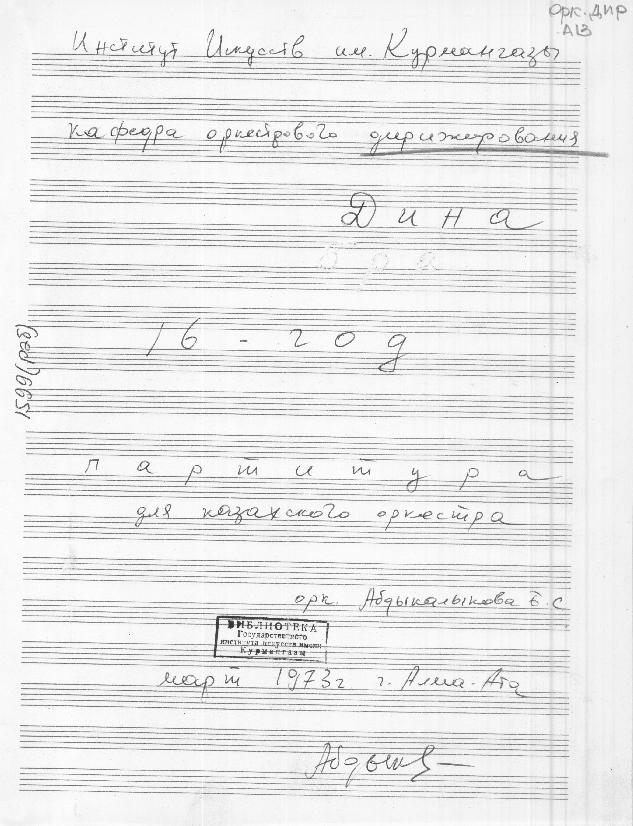 Орк. ДИР
А13
Институт Искусств им. Курмангазы
кафедра оркестрового дирижирования
Дина
16-год
партитура
для казахского оркестра
орк. Абдыкалыкова Б.С
БИБЛИОТЕКА
Государственного
института искусств имени
Курмангазы
март 1973г г. Алма-Ата